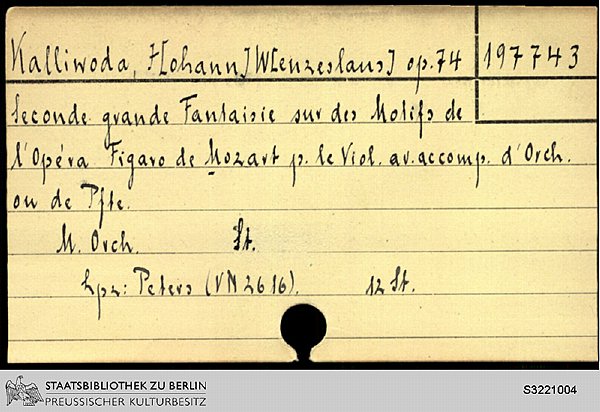 Kalliwoda, J[ohann] W[enzeslaus] op. 74 197743
Seconde grande Fantaisie sur des Motifs de
l'Opéra Figaro de Mozart p. le Viol. av. accomp. d'Orch.
ou de Pfte.
M. Orch. St.
Lpz: Peters (VN 2616). 12 St.
STAATSBIBLIOTHEK ZU BERLIN
PREUSSISCHER KULTURBESITZ
S3221004